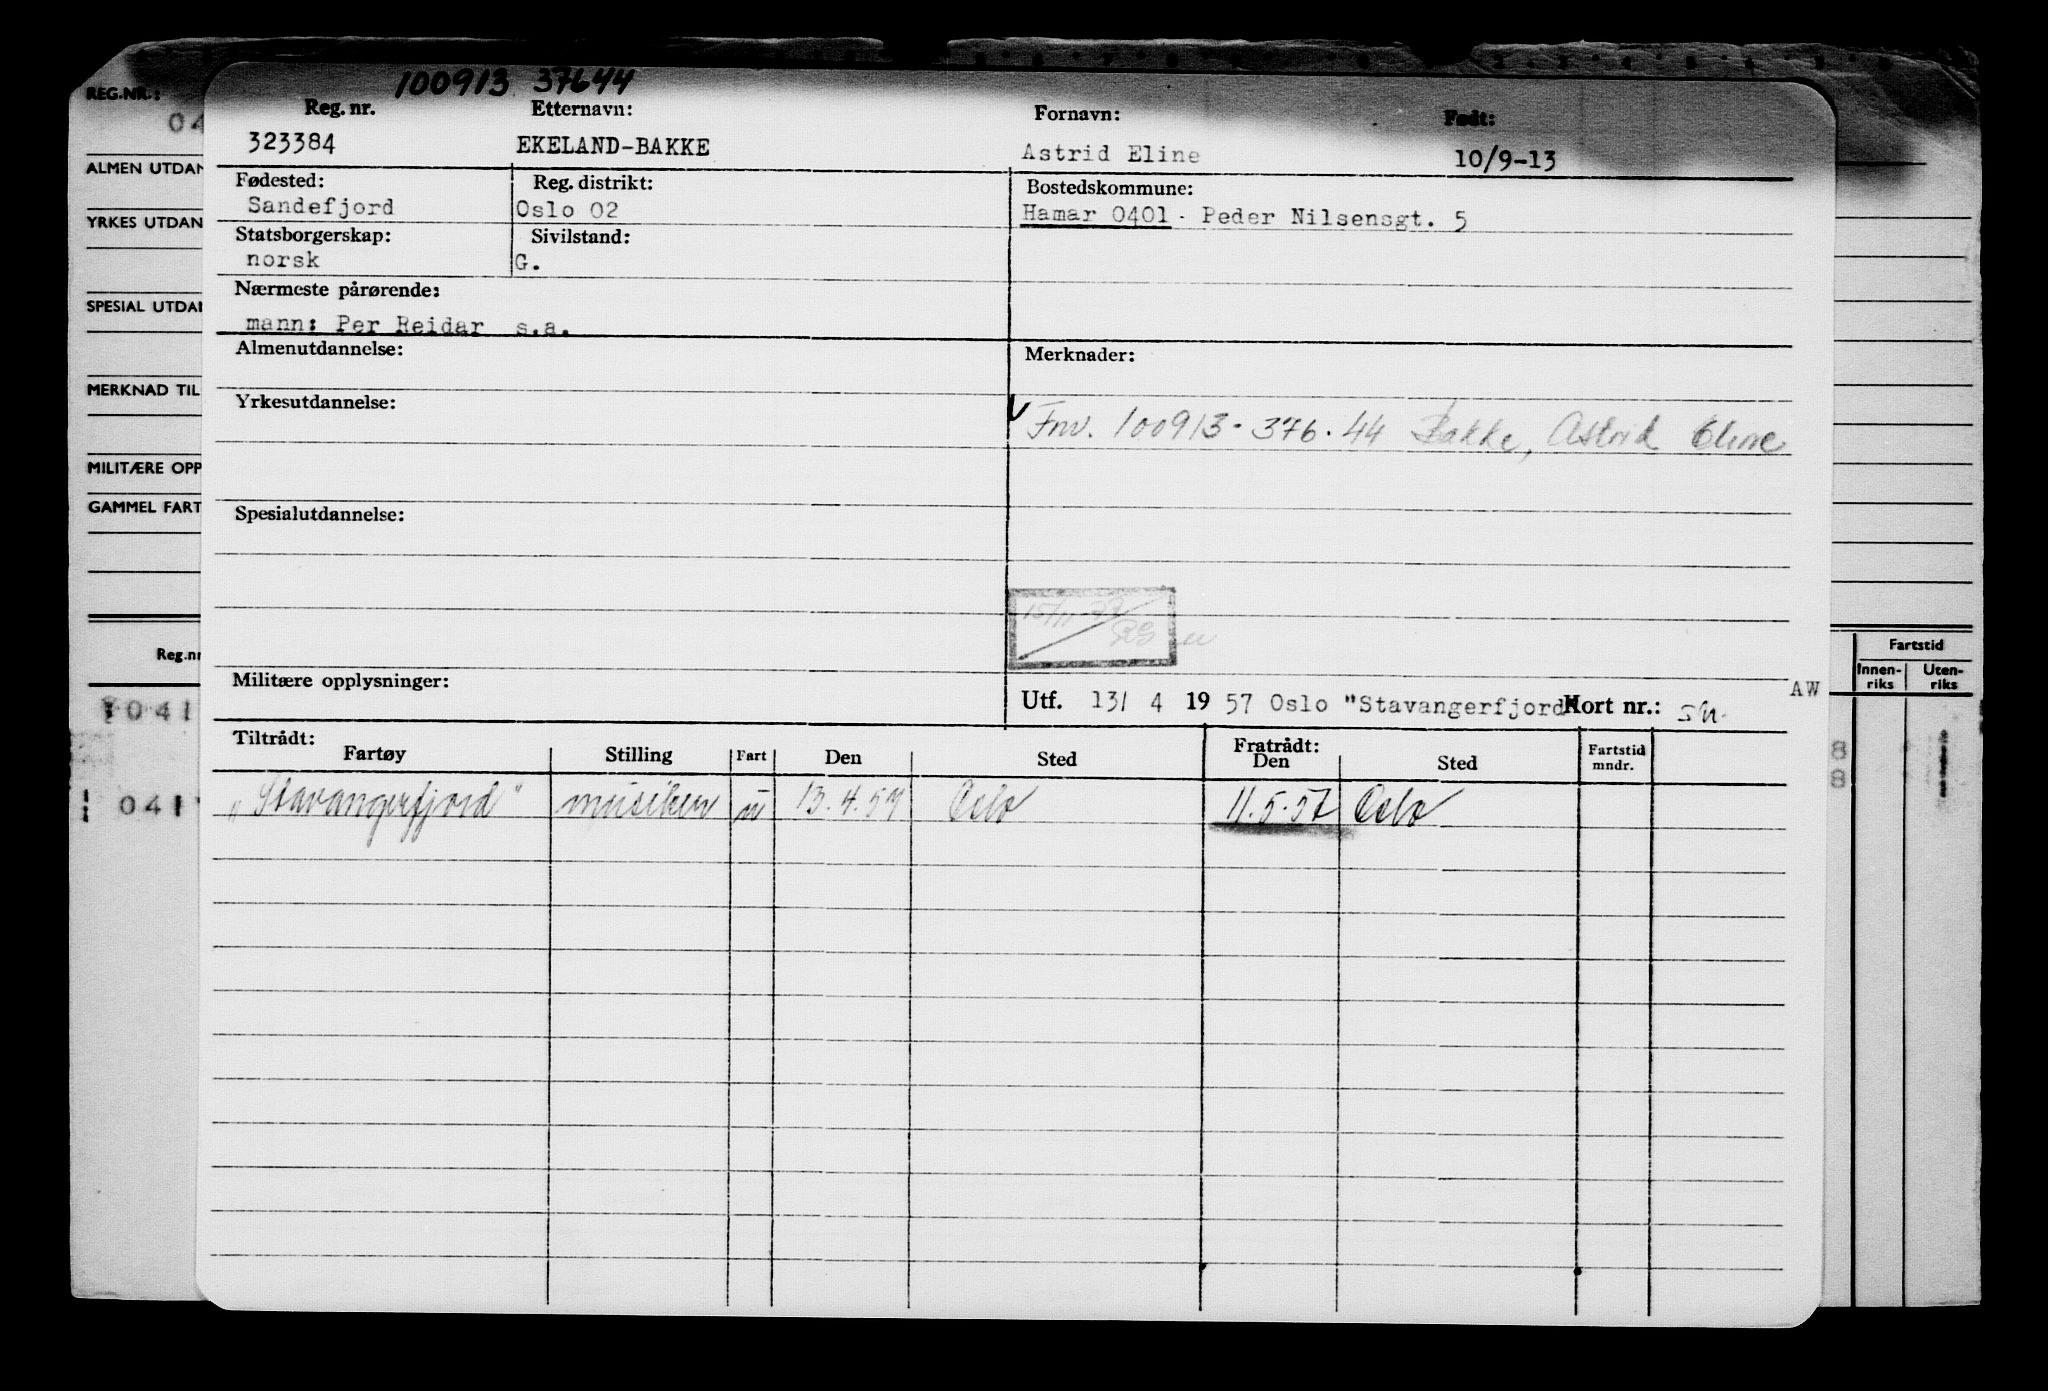 100913 37644
REG.NR.:
04
Reg. nr. Etternavn: Fornavn: Født:
323384 EKELAND-BAKKE Astrid Eline 10/9-13
ALMEN UTDAN
Fødested: Reg. distrikt: Bostedskommune:
Sandefjord Oslo 02 Hamar 0401 - Peder Nilsensgt. 5
YRKES UTDAN
Statsborgerskap: Sivilstand:
norsk G.
Nærmeste pårørende:
SPESIAL UTDAN
mann: Per Reidar s.a.
Almenutdannelse: Merknader:
MERKNAD TIL
Yrkesutdannelse:
Fnv. 100913 - 376.44 Bakke, Astrid Eline
MILITÆRE OPP
GAMMEL FART
Spesialutdannelse:
15/11-77
Reg.nr
Fartstid
Innen- Uten-
riks riks
Militære opplysninger:
Utf. 13/ 4 19 57 Oslo "Stavangerfjord" Kort nr.: AW
041
Tiltrådt: Fratrådt:
Fartøy Stilling Fart Den Sted Den Sted Fartstid mndr.
8
8
041
"Stavangerfjord" musiker u 13.4.57 Oslo 11.5.57 Oslo